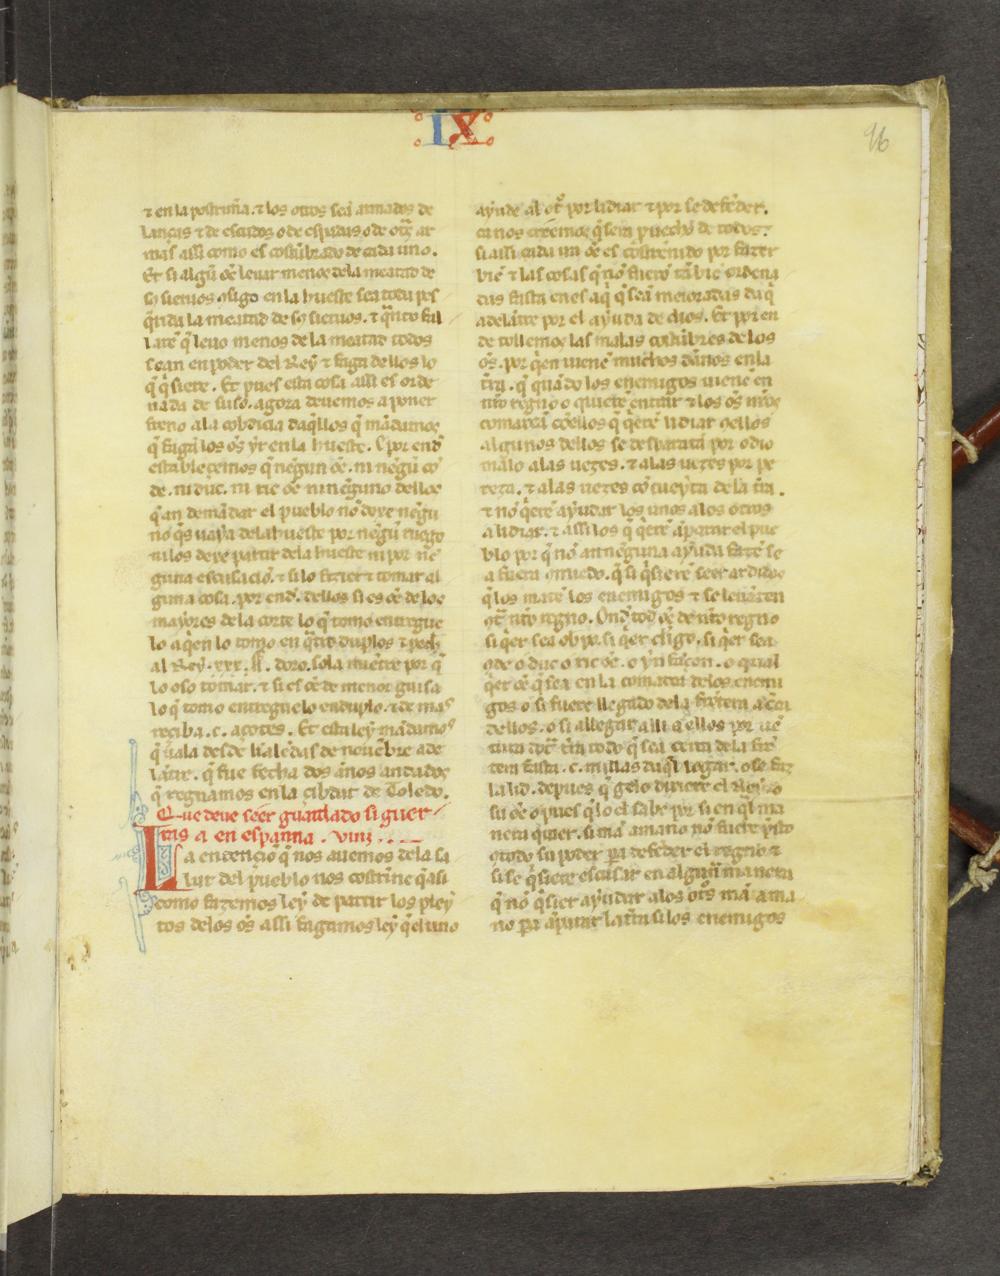 IX
96
⁊ en la postruña. ⁊ los otros seã armados de
lanças ⁊ de escudos o de espadas o de otᷓs ar
mas assi como es costũbrado de cada uno.
Et si algũ oẽ leuar menos dela meatad de
sos sieruos cõsigo en la hueste sea toda pes
q̃rida la meatad de sos sieruos. ⁊ q̃nto fal
larẽ q̃ leuo menos de la meatad todos
sean en poder del Rey ⁊ faga dellos lo
q̃ q̃siere. Et pues esta cosa assi es orde
nada de suso. agora deuemos a poner
freno ala cobdicia daq̃llos q̃ mãdamos
q̃ fagã los oẽs yr en la hueste. E por end
establecemos q̃ negun oẽ. ni negũ cõ
de. ni duc. ni ric oẽ ni neguno dellos
q̃ an demãdar el pueblo nõ dexe negũ
nõ q̃s uaya dela hueste por negũ ruego
ni los dexe partir dela hueste ni por ne
guna escusaciõ. ⁊ si lo fizier ⁊ tomar al
guna cosa. por end. dellos si es oẽ de los
mayores de la corte lo q̃ tomo entregue
lo a q̃en lo tomo en q̃tro duplos ⁊ peche
al Rey .xxx. ll. doro. sola mientre por q̃
lo oso tomar. ⁊ si es oẽ de menor guisa
lo q̃ tomo entreguelo enduplo. ⁊ de mas
reciba .c. açotes. Et esta ley mãdamos
q̃ uala desde kalẽdas de nouẽbre ade
lãtre. q̃ fue fecha dos annos andados
q̃ regnamos en la çibdat de Toledo.
Que deue seer guardado si guer
ras a en espanna. viiij.
La entençiõ q̃ nos auemos dela sa
lut del pueblo nos costrine q̃ assi
como fazemos ley de partir los pley
tos delos oẽs assi fagamos ley q̃ el uno
ayude al otᵒ por lidiar ⁊ por se defẽder.
ca nos creemos q̃ sera puecho de todos.
si assi cada un oẽ es costrenido por fazer
biẽ ⁊ las cosas q̃ nõ fuerõ tã biẽ ordena
das fasta en es aq̃ q̃ seã meioradas da q̃
adelãtre por el ayuda de dios. Et por en
de tollemos las malas costũbres de los
oẽs. por q̃en uienẽ muchos dãnos en la
tr̃ra. q̃ quãdo los enemigos uienẽ en
nr̃o regno o quierẽ entrar ⁊ los oẽs nr̃os
comarcã cõellos q̃ q̃erẽ lidiar cõellos
algunos dellos se desbaratã por odio
malo alas uezes. ⁊ alas uezes por pe
reza. ⁊ alas uezes cõ cueyta de la tr̃a.
⁊ nõ q̃erẽ ayudar los unos alos otros
a lidiar. ⁊ assi los q̃ q̃erẽ ãparar el pue
blo por q̃ nõ an neguna ayuda fazẽ se
a fuera cõ miedo. q̃ si q̃sierẽ seer ardidos
q̃ los matẽ los enemigos ⁊ se leuãten
cõtᷓ nr̃o regno. Ond todo oẽ de nr̃o regno
si q̃er sea obpo. si q̃er clᵉigo. si q̃er sea
cõde o duc o ric oẽ. o ynfançon. o qual
q̃er oẽ q̃ sea en la comarca delos enemi
gos o si fuere llegado dela frõtera açerca
dellos. o si allegar alli a ellos por uẽ
tura dotᷓ tr̃ra todo q̃ sea cerca dela frõ
tera fasta .c. millas daq̃l logar. o se faz
la lid. depues q̃ gelo dixiere el Rey o
su oẽ o pues q̃ lo el sabe por si en q̃l ma
nera quier. si mãamano nõ fuere p̃sto
cõ todo su poder pᷓa defẽder el regno ⁊
si se q̃siere escusar en alguna manera
q̃ nõ q̃sier ayudar alos otᵒs mãama
no pᷓa ãparar la tr̃ra si los enemigos